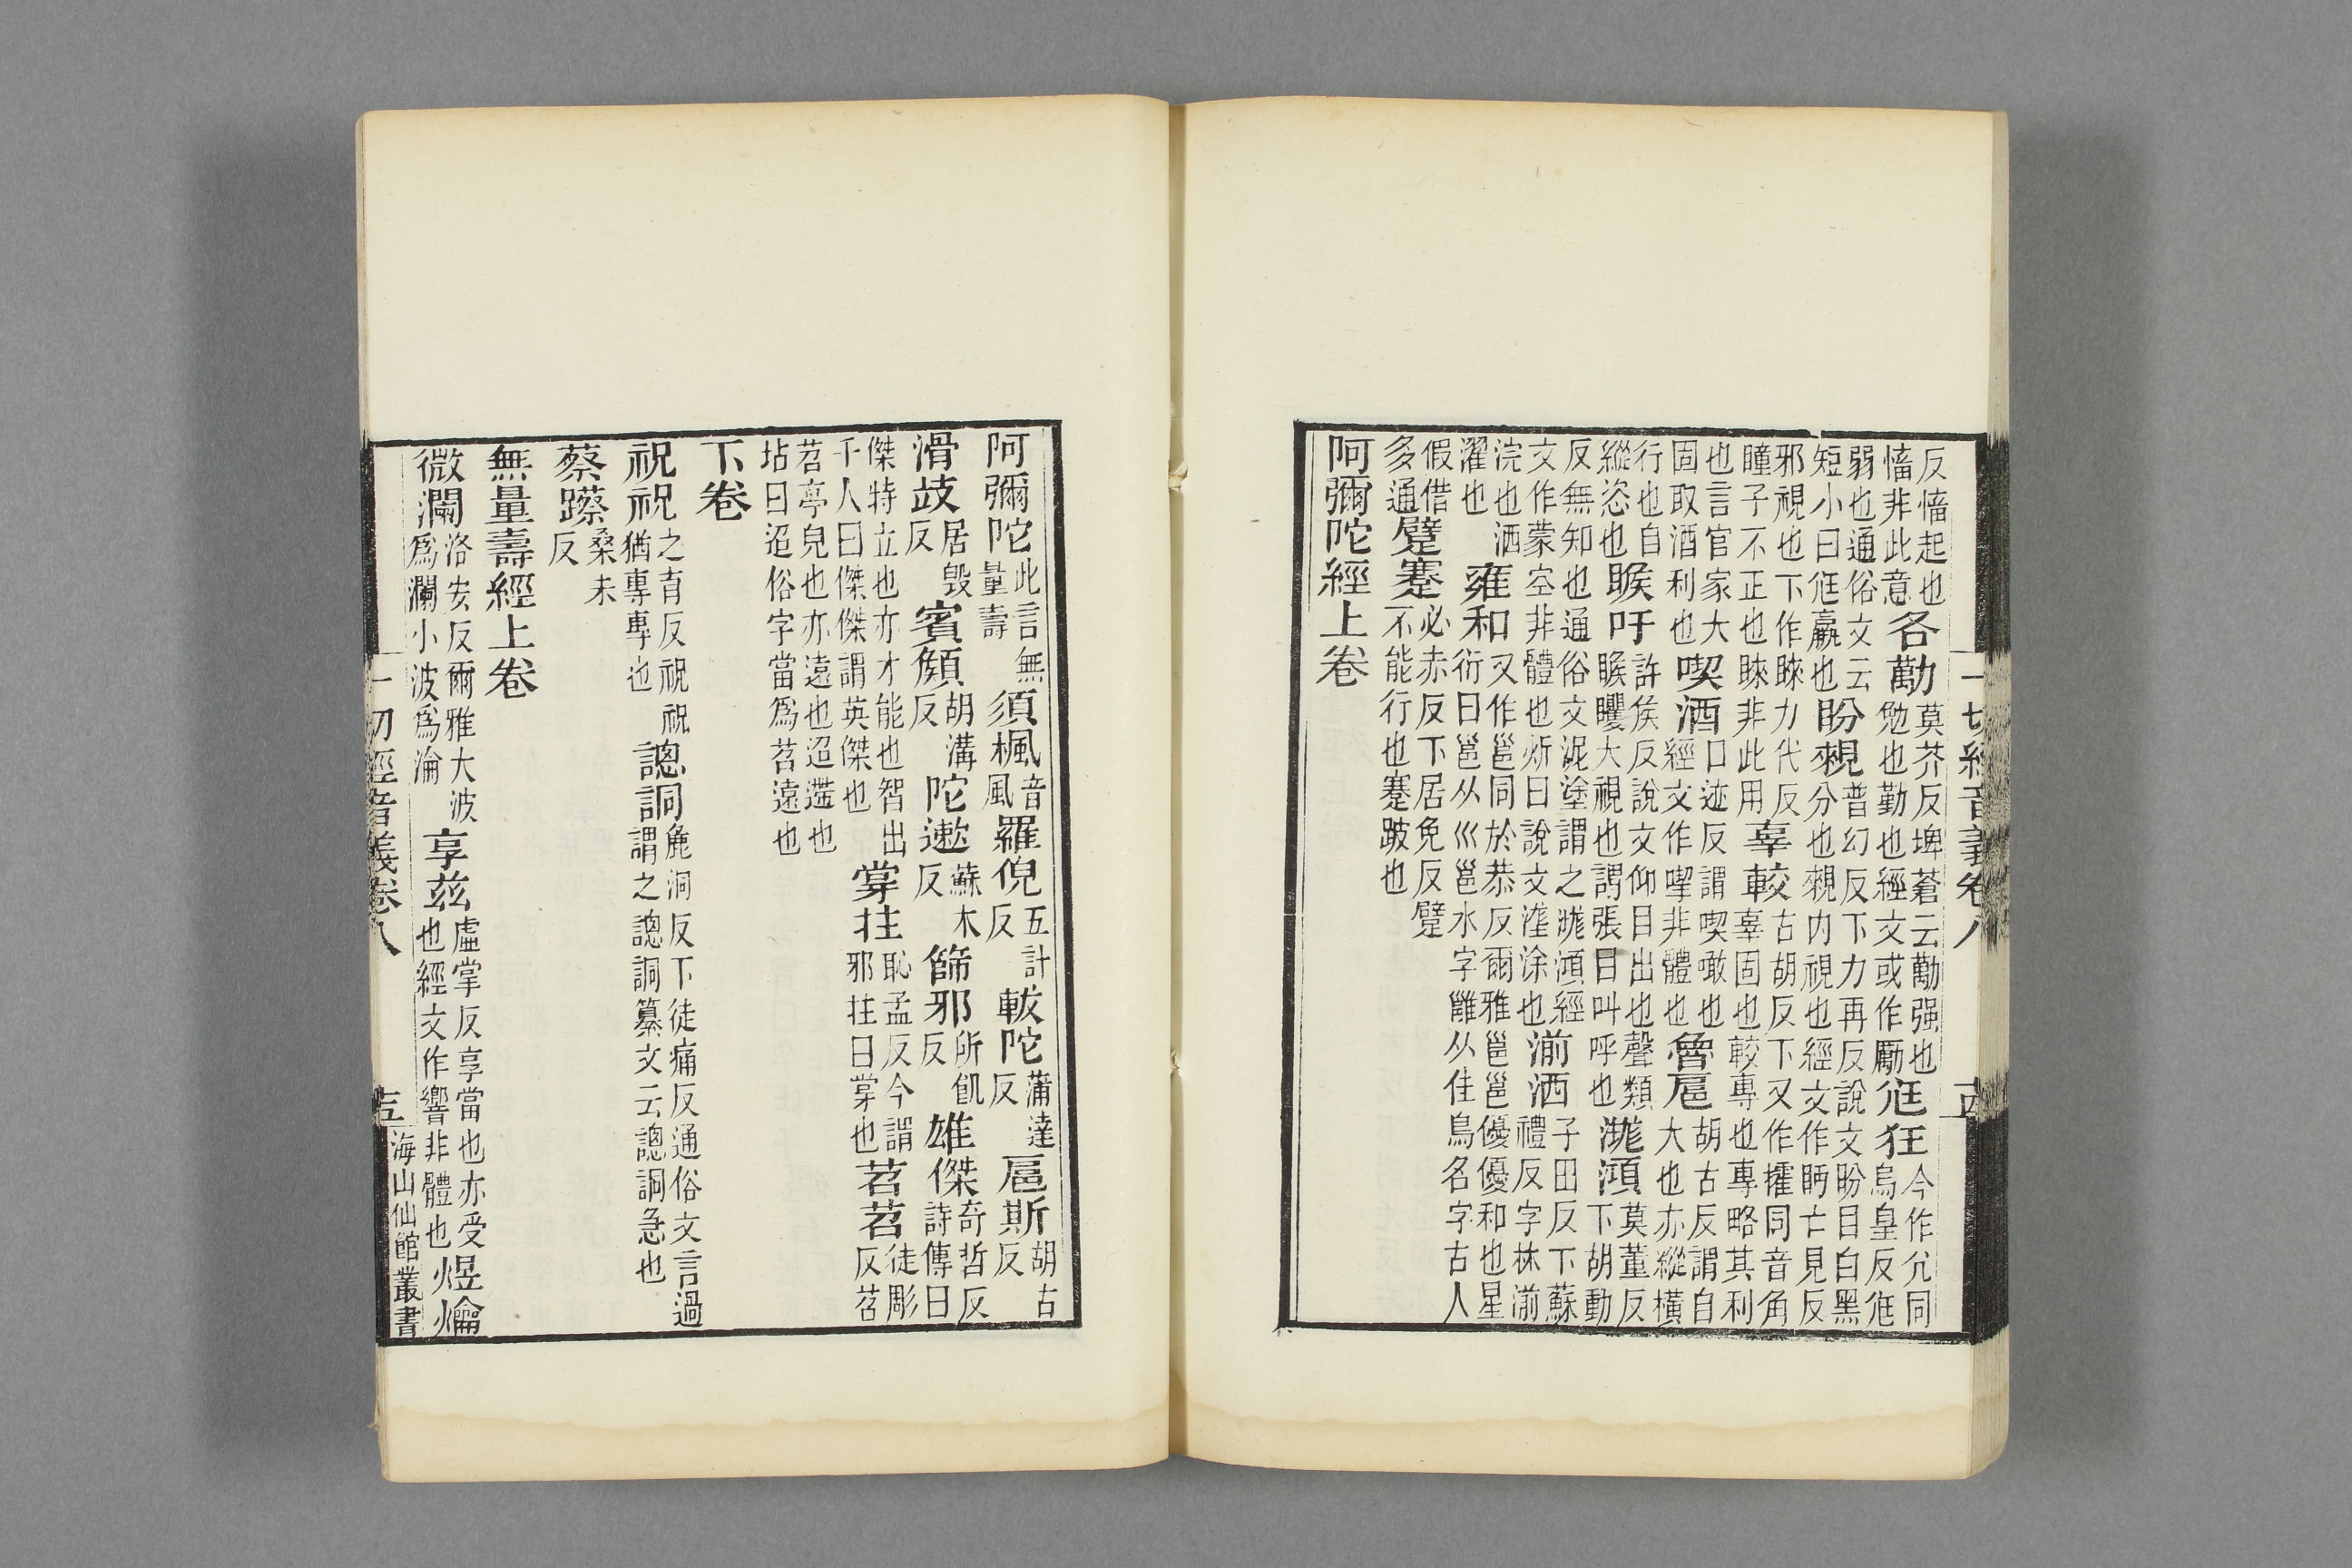 反慉起也慉非此意各勱莫芥反埤蒼云勱强也勉也勤也經文或作勵尫狂今作尣同烏皇反尫
弱也通俗文云短小曰尫羸也盼覙普幻反下力再反說文盼目白黑分也覙内視也經文作眄亡見反
邪視也下作睞力代反瞳子不正也睞非此用辜較古胡反下又作㩁同音角辜固也較專也專略其利
也言官家大固取酒利也喫酒口迹反謂喫噉也經文作㗉非體也魯扈胡古反謂自大也亦縱橫
行也自縱恣也睺吁許矦反說文仰目出也聲類睺矍大視也謂張目叫呼也濛澒莫董反下胡動
反無知也通俗文泥塗謂之濛澒經文作蒙空非體也炘曰說文漄涂也湔洒子田反下蘇禮反字林湔
浣也洒濯也雍和又作邕同於恭反爾雅邕邕優優和也星衍曰邕从巛邕水字雝从隹鳥名字古人
假借多通躄蹇必赤反下居免反躄不能行也蹇跛也
阿彌陀經上卷
一切經音義卷八 十四
阿彌陀此言無量壽須楓音風羅倪五計反軷陀蒲達反扈斯胡古反
滑歧居毁反賓䫌胡溝反陀遬蘇木反篩邪所飢反雄傑奇哲反詩傳曰
傑特立也亦才能也智出千人曰傑傑謂英傑也牚拄恥孟反今謂邪拄曰牚也苕苕徒彫反苕
苕亭皃也亦遠也迢遰也坫曰迢俗字當爲苕遠也
下卷
祝祝之育反祝祝猶專專也謥詷麁洞反下徒痛反通俗文言過謂之謥詷纂文云謥詷急也
蔡躒桑未反
無量壽經上卷
微瀾洛安反爾雅大波爲瀾小波爲淪享兹虛掌反享當也亦受也經文作響非體也煜爚
一切經音義卷八 十五 海山仙館叢書